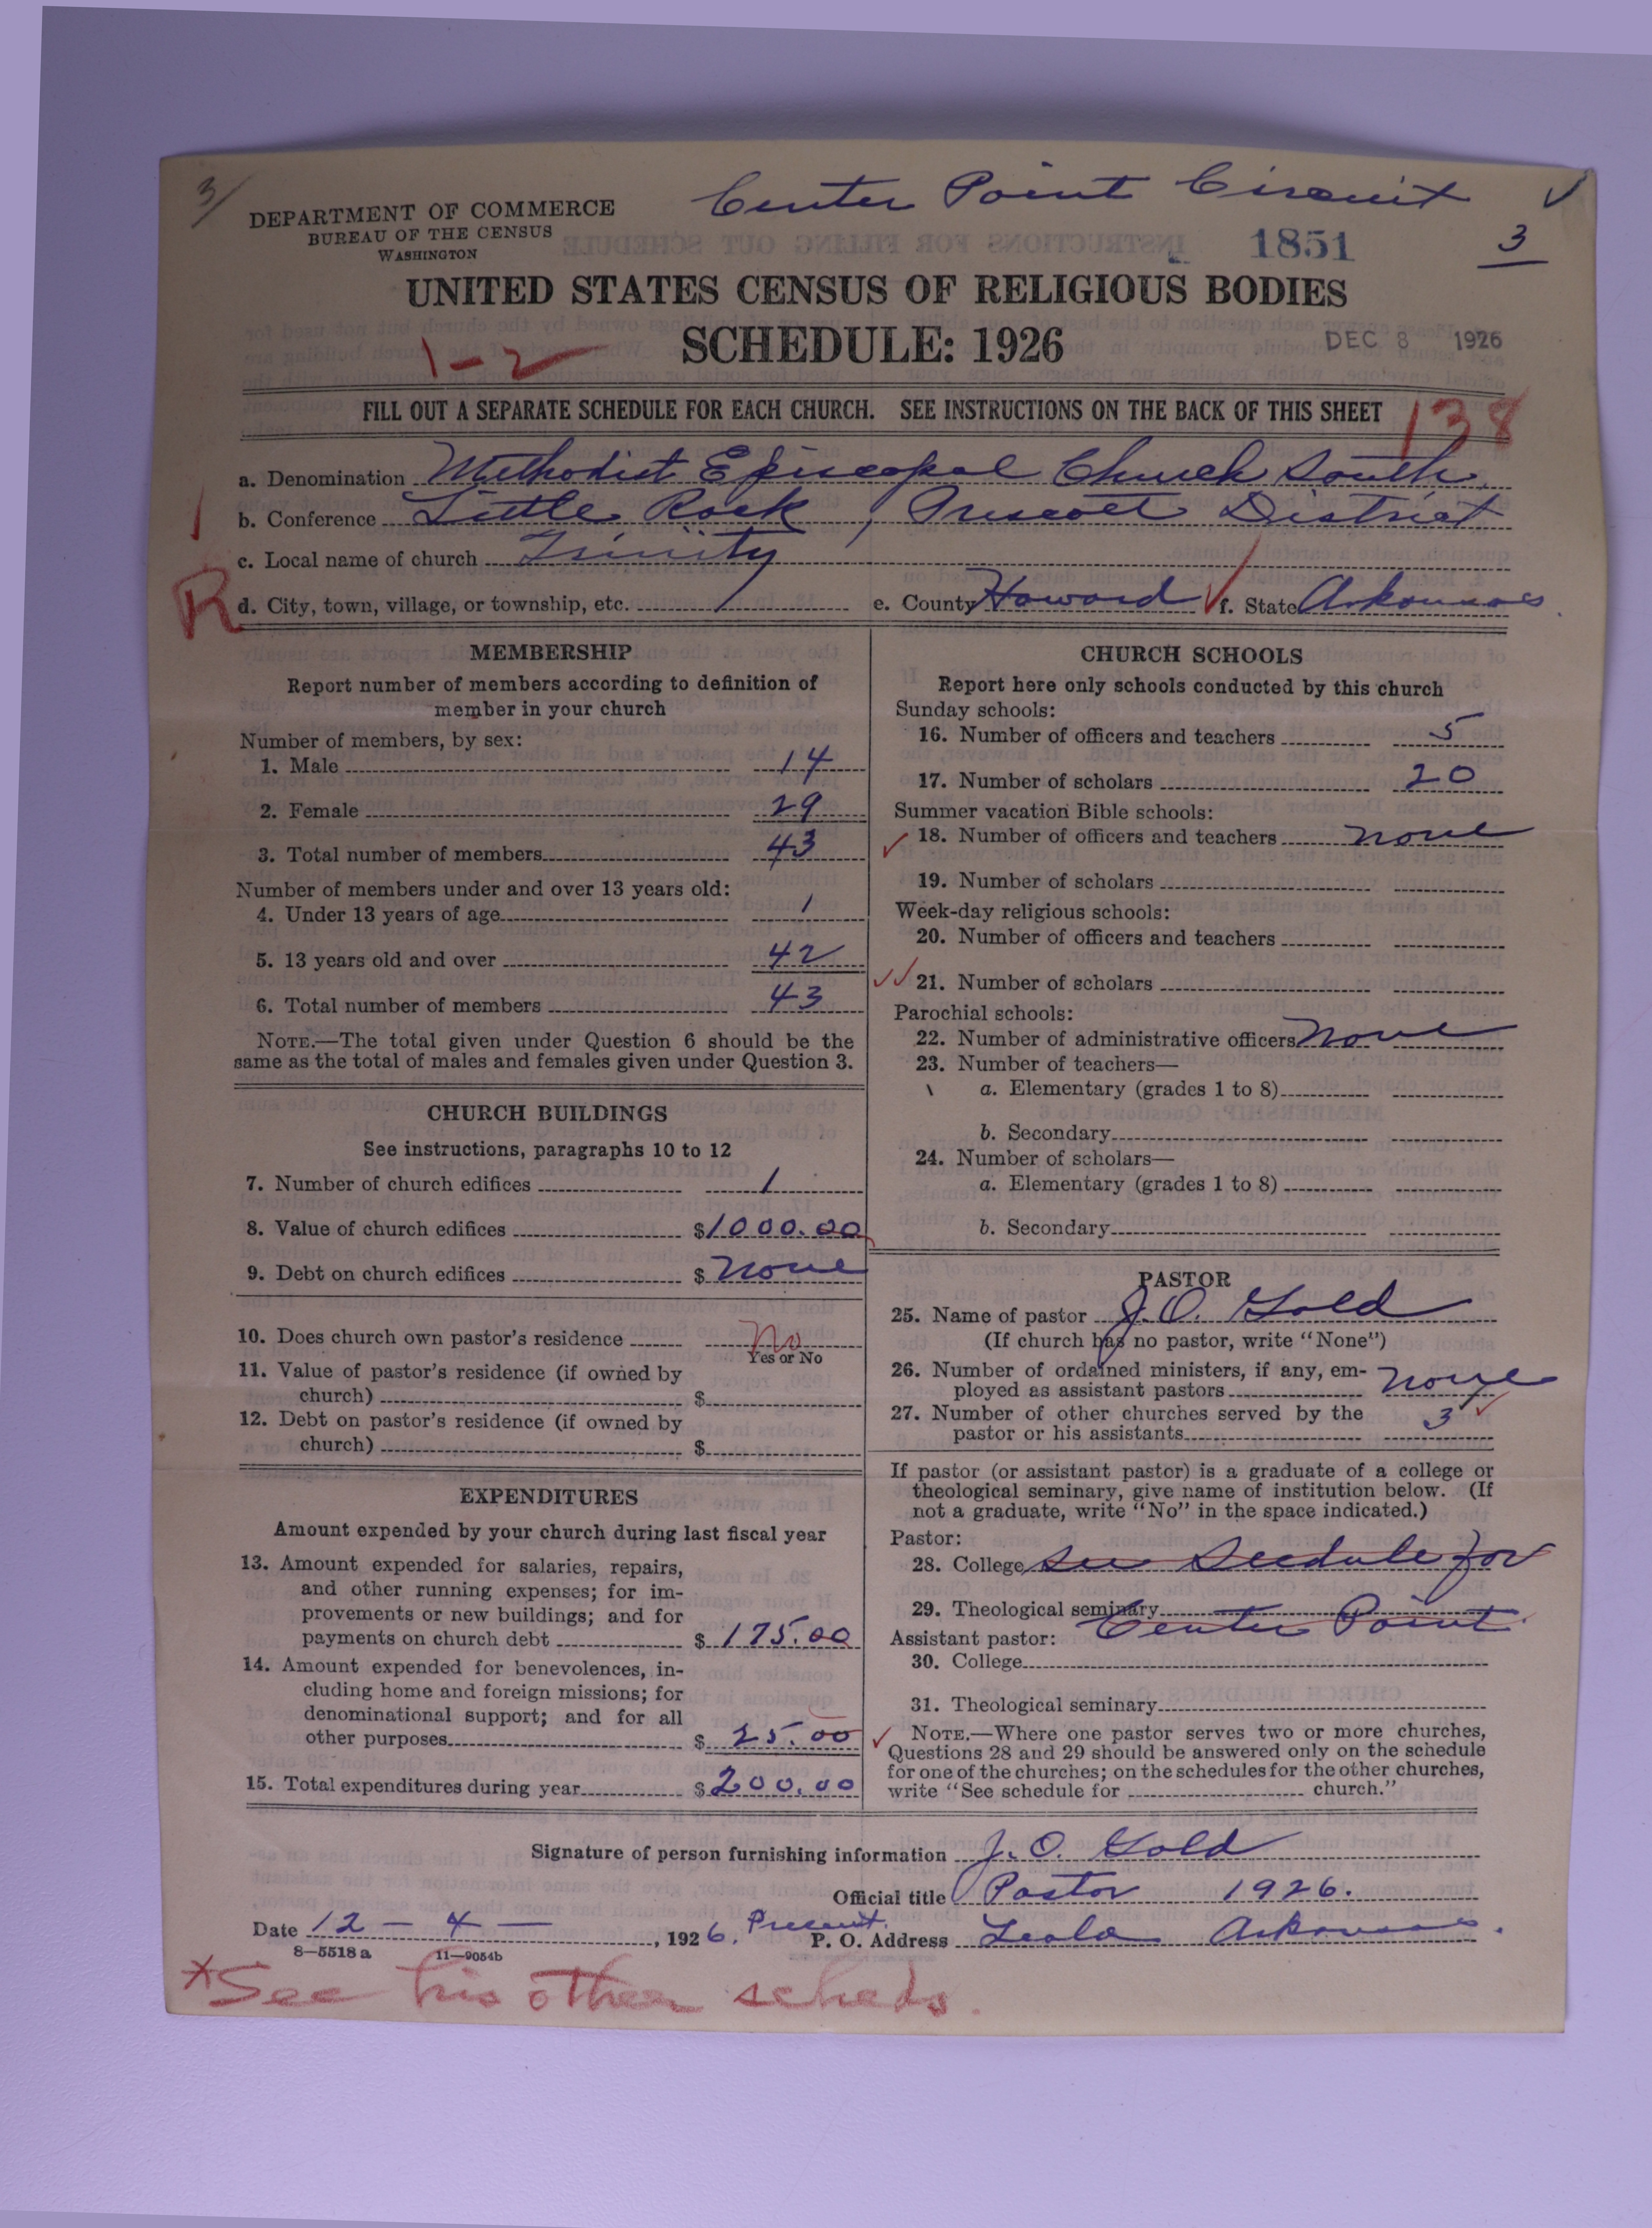 3/
Center Point Circuit
DEPARTMENT OF COMMERCE
BUREAU OF THE CENSUS
WASHINGTON
1851
3
UNITED STATES CENSUS OF RELIGIOUS BODIES
SCHEDULE: 1926
1-2
DEC 8 1926
FILL OUT A SEPARATE SCHEDULE FOR EACH CHURCH. SEE INSTRUCTIONS ON THE BACK OF THIS SHEET
138
a. Denomination Methodist Episcopal Church South
b. Conference Little Rock, Prescott District
c. Local name of church Trinity
R
d. City, town, village, or township, etc. e. County Howard f. State Arkansas
MEMBERSHIP
Report number of members according to definition of
member in your church
Number of members, by sex:
1. Male 14
2. Female 29
3. Total number of members 43
Number of members under and over 13 years old:
4. Under 13 years of age 1
5. 13 years old and over 42
6. Total number of members 43
NOTE.—The total given under Question 6 should be the
same as the total of males and females given under Question 3.
CHURCH BUILDINGS
See instructions, paragraphs 10 to 12
7. Number of church edifices 1
8. Value of church edifices $1000.00
9. Debt on church edifices $ None
10. Does church own pastor's residence No
Yes or No
11. Value of pastor's residence (if owned by
church) $
12. Debt on pastor's residence (if owned by
church) $
EXPENDITURES
Amount expended by your church during last fiscal year
13. Amount expended for salaries, repairs,
and other running expenses; for im-
provements or new buildings; and for
payments on church debt $ 175.00
14. Amount expended for benevolences, in-
cluding home and foreign missions; for
denominational support; and for all
other purposes $ 25.00
15. Total expenditures during year $ 200.00
CHURCH SCHOOLS
Report here only schools conducted by this church
Sunday schools:
16. Number of officers and teachers 5
17. Number of scholars 20
Summer vacation Bible schools:
18. Number of officers and teachers none
19. Number of scholars
Week-day religious schools:
20. Number of officers and teachers
21. Number of scholars
Parochial schools:
22. Number of administrative officers None
23. Number of teachers—
a. Elementary (grades 1 to 8)
b. Secondary
24. Number of scholars—
a. Elementary (grades 1 to 8)
b. Secondary
PASTOR
25. Name of pastor J. O. Gold
(If church has no pastor, write "None")
26. Number of ordained ministers, if any, em-
ployed as assistant pastors None
27. Number of other churches served by the
pastor or his assistants 3
If pastor (or assistant pastor) is a graduate of a college or
theological seminary, give name of institution below. (If
not a graduate, write "No" in the space indicated.)
Pastor:
28. College See Scedule for
29. Theological seminary
Center Point
Assistant pastor:
30. College
31. Theological seminary
NOTE.—Where one pastor serves two or more churches,
Questions 28 and 29 should be answered only on the schedule
for one of the churches; on the schedules for the other churches,
write "See schedule for church."
Signature of person furnishing information J. O. Gold
Official title Pastor 1926.
Date 12 - 4 - , 1926. Present P. O. Address Leola Arkansas.
8—5518 a 11—9054b
*See his other scheds.